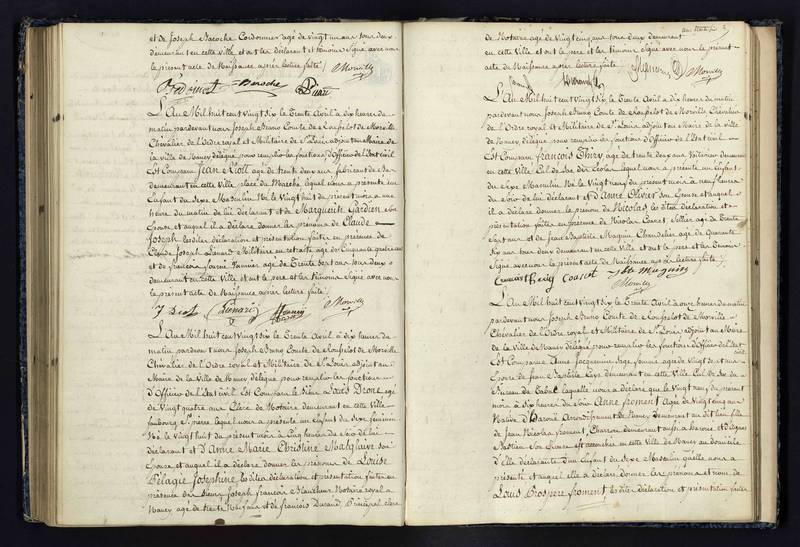 et de Joseph Baroche Cordonnier agé de vingt un ans tous deux
demeurant en cette ville et ont les déclarant et témoins signé avec nous
le présent acte de Naissance après lecture faite /. Morvilly
Baroche
L'An Mil huit cent Vingt six le trente Avril à dix heures du
matin pardevant nous Joseph Bruno Comte de Rousselot de Morville
Chevalier de l'Ordre royal et Militaire de St Louis adjoint au Maire de
la ville de Nancy délégué pour remplir les fonctions d'Officier de l'Etat civil
Est Comparu Jean Diott agé de trente deux ans fabricant de
demeurant en cette Ville place du Marché lequel nous a présenté un
Enfant du sexe Masculin Né le Vingt huit du présent mois à une
heure du matin de lui déclarant et de Marguerite Gardien son
Epouse et auquel il a déclaré donner les prénoms de Claude
Joseph lesdites déclaration et présentation faites en présence de
Claude Joseph Militaire en retraite agé de Cinquante quatre ans
et de françois agé de trente sept ans tous deux
demeurant en cette Ville et ont le père et les témoins signé avec nous
le présent acte de Naissance après lecture faite /.
L'An Mil huit cent Vingt six le trente Avril à dix heures du
matin pardevant nous Joseph Bruno Comte de Rousselot de Morville
Chevalier de l'Ordre royal et Militaire de St Louis adjoint au
Maire de la Ville de Nancy délégué pour remplir les fonctions
d'Officier de l'Etat civil Est Comparu le Sieur Louis Dion agé
de Vingt quatre ans Clerc de Notaire demeurant en cette Ville
faubourg St Pierre lequel nous a présenté un Enfant du sexe féminin
Né le Vingt huit du présent mois à Cinq heures du soir de lui
déclarant et d'Anne Marie Christine Matglaire son
Epouse et auquel il a déclaré donner les prénoms de Louise
Pélagie Joséphine lesdites déclaration et présentation faites en
présence des Sieurs Joseph françois Blancheur Notaire royal à
Nancy agé de trente ans et de françois Durand Principal clerc
de Notaire agé de Vingt cinq ans tous deux demeurant
en cette Ville et ont le père et les témoins signé avec nous le présent
acte de Naissance après lecture faite /.
L'An Mil huit cent Vingt six le Trente Avril à dix heures du matin
pardevant nous Joseph Bruno Comte de Rousselot de Morville Chevalier
de l'Ordre royal et Militaire de St Louis adjoint au Maire de la ville
de Nancy délégué pour remplir les fonctions d'Officier de l'Etat civil
Est Comparu françois Thiry agé de trente deux ans Voiturier demeurant
en cette Ville Cul de sac des Ecoles lequel nous a présenté un Enfant
du sexe Masculin Né le Vingt neuf du présent mois à neuf heures
du soir de lui déclarant et d'Anne Olivier son Epouse et auquel
il a déclaré donner le prénom de Nicolas lesdites déclaration et
présentation faites en présence de Nicolas Sellier agé de Trente
sept ans et de Jean Baptiste Magnin Chandelier agé de Quarante
six ans tous deux demeurant en cette Ville et ont le père et les témoins
signé avec nous le présent acte de Naissance après lecture faite /.
L'An Mil huit cent Vingt six le Trente Avril à onze heures du matin
pardevant nous Joseph Bruno Comte de Rousselot de Morville
Chevalier de l'Ordre royal et Militaire de St Louis adjoint au Maire
de la Ville de Nancy délégué pour remplir les fonctions d'Officier de l'Etat
civil
Est Comparue Anne Jacquemine Sage femme agée de Vingt sept ans
Epouse de Jean Baptiste demeurant en cette Ville Cul de sac du
Bureau de Tabac laquelle nous a déclaré que le Vingt neuf du présent
mois à dix heures du soir Anne froment Agée de Vingt cinq ans
Native d'Haroué Arrondissement de Nancy demeurant au dit lieu fille
de Jean Nicolas froment, Charron demeurant aussi à haroué et
son Epouse est accouchée en cette Ville de Nancy au domicile
d'elle déclarante d'un Enfant du sexe Masculin qu'elle nous a
présenté et auquel elle a déclaré donner les prénoms et nom de
Louis Prospere froment lesdites déclaration et présentation faites